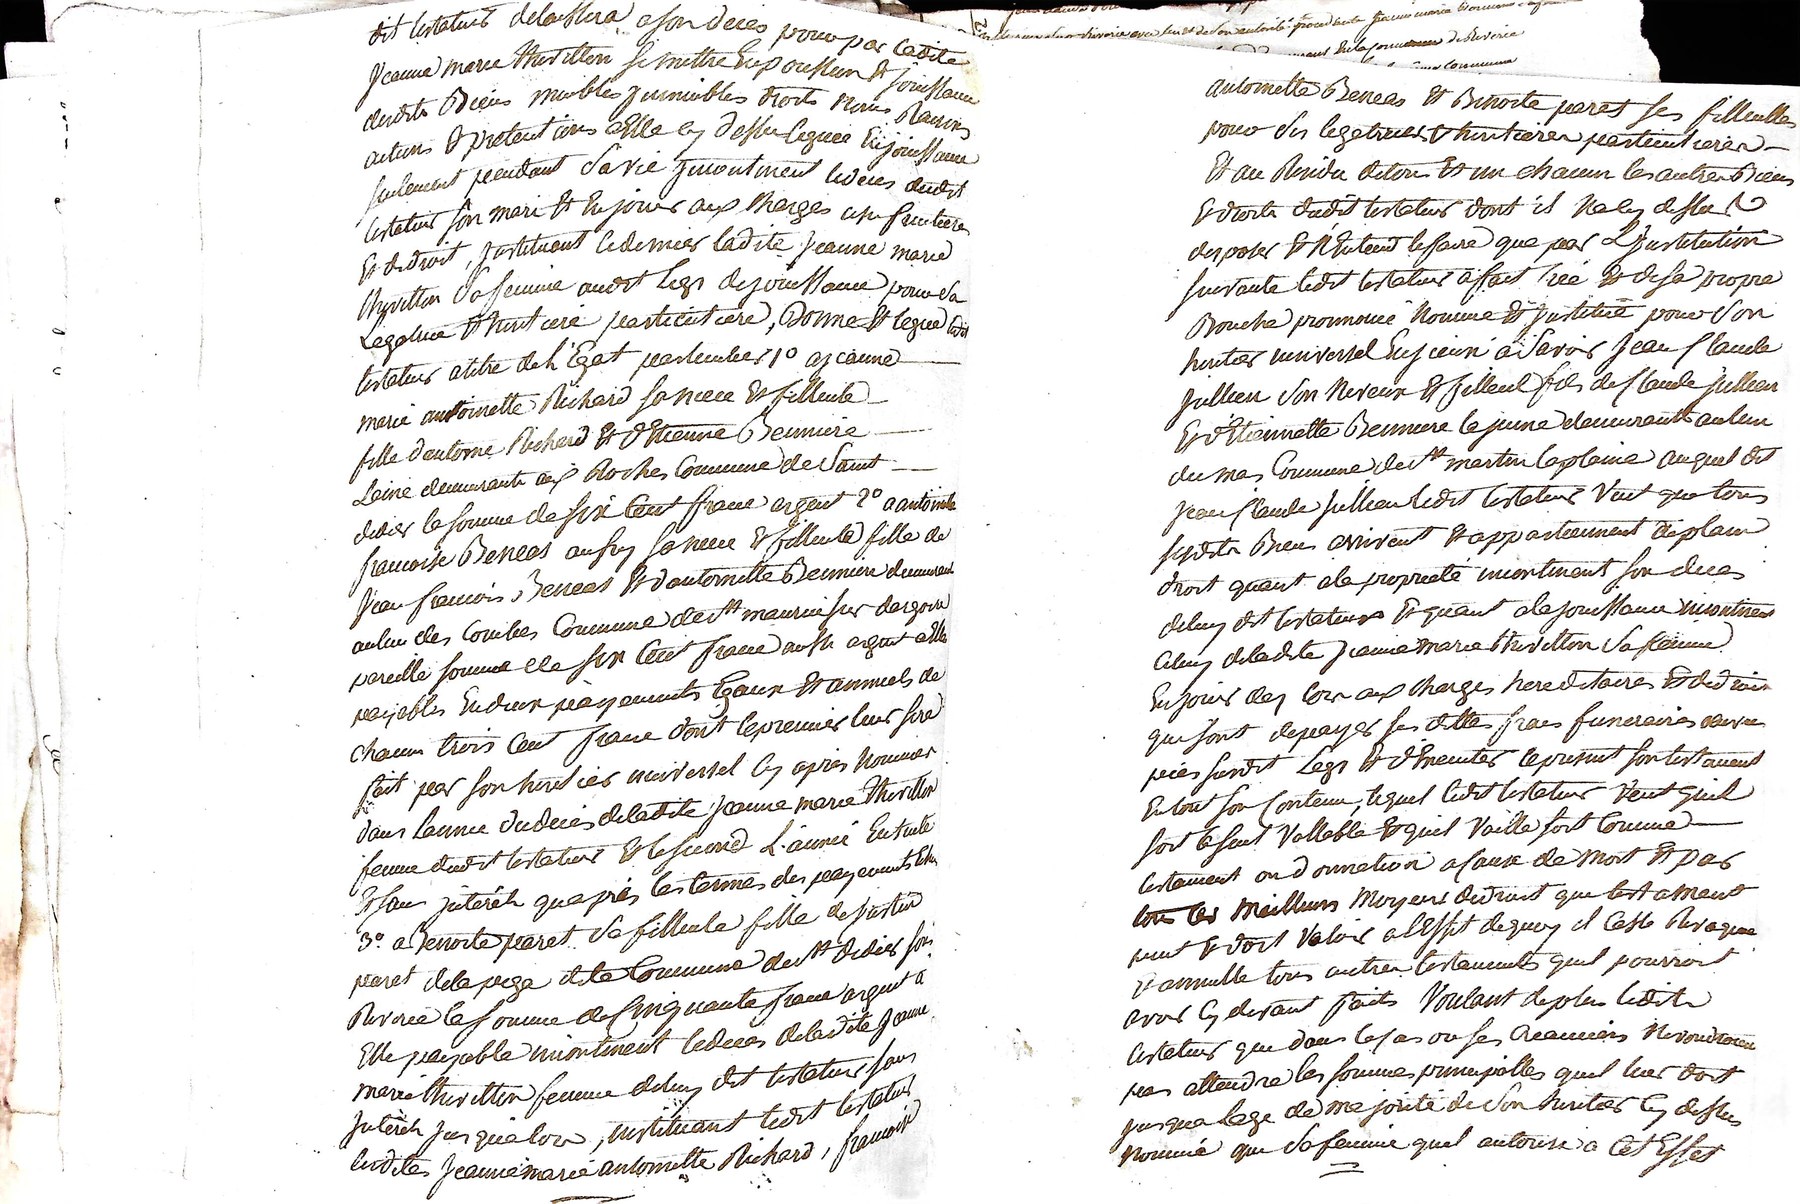 dit testateur delaissera a son deces pour par ladite
Jeanne marie thivillon se mettre En possession Et jouissance
desdits Biens meubles jmmeubles droits noms Raisons
actions Et pretentions a Elle cy dessu leguée En jouissance
seulement pendant sa vie jncontinent le deces dudit
testateur son mari Et En jouir aux Charges usufruitieres
Et de droit, jnstituant ce dernier ladite Jeanne marie
thivillon sa femme audit legs de jouissance pour sa
Legatrice Et heritiere particuliere, Donne Et legue ledit
testateur a titre de h'Egat particulier 1º a jeanne
marie antoinette Richard sa niece Et filleule
fille d'antoine Richard Et d'Etienne Bennière
Lainé demeurante aux Roches Commune de Saint
didier la somme de six Cent franc argent 2º a antoinette
francoise Beneas aussy sa niece Et filleule fille de
Jean francois Beneas Et d'antoinette Bennière demeurant
au lieu des Combes Commune de st maurice sur dargoire
pareille somme de six Cent franc aussi argent a Elle
payables En deux payements Egaux Et annuels de
chacun trois Cent franc dont le premier leur sera
fait par son heritier universel cy après nommer
dans Lannee du deces de ladite Jeanne marie thivillon
femme dudit testateur Et le second L'année Ensuite
Et sans jnterêts qu'après les termes des payements Echu
3º. a Benoite paret sa filleule fille de
paret de la de la Commune de st didier sous
Riverie la somme de Cinquante franc argent a
Elle payable jncontinent le deces de ladite Jeanne
marie thivillon femme de luy dit testateur sans
jnterêts jusqu'a lors, jnstituant ledit testateur
lesdites Jeanne marie antoinette Richard, francoise
antoinette Beneas Et Benoite paret ses filleulles
pour ses legatrices Et heritieres particulieres
Et au Residu de tous Et un chacun les autres Biens
Et droits dudit testateur dont il Na cy dessus
disposer Et N'Entend le faire que par L'jnstitution
suivante ledit testateur a fait créé Et de sa propre
Bouche prononcé Nommé Et jnstitué pour son
heritier universel à savoir Jean Claude
jullien son Neveux Et filleul fils de Claude jullien
Et d'Etiennette Benniere la jeune demeurants au lieu
du mas Commune de st martin la plaine auquel dit
jean Claude jullien ledit testateur Veut que tous
sesdits Biens arrivent Et appartiennent de plain
droit quant a la propriete jncontinent son deces
de luy dit testateur Et quant a la jouissance jncontinent
Celuy de ladite Jeanne marie thivillon sa femme
En jouir des lors aux Charges hereditaires Et de droit
qui sont de payer ses dettes frais funeraires
pies susdit legs Et d'Executer le present son testament
En tout son Contenu, lequel ledit testateur Veut quil
soit Vallable Et quil Vaille soit Comme
testament ou donnation a Cause de Mort Et par
tous les Meilleurs Moyens de droit que testament
peut Et doit Valoir a l'Effet de quoy il Casse Revoque
Et annulle tous autres testaments quil pourroit
avoir cy devant faits Voulant de plus ledit
testateur que dans le Cas ou ses Creanciers Ne voudroient
pas attendre les sommes principalles quil leur doit
jusqua lage de majorité de son heritier cy dessus
Nommé que sa femme quil autorise a Cet Effet